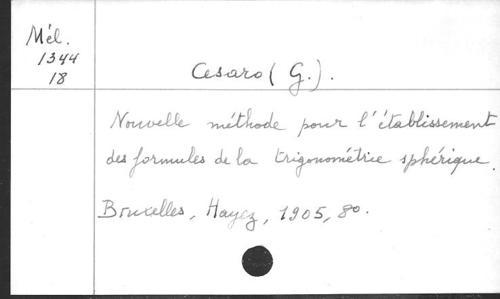 Mél.
1344
18
Cesaro (G.).
Nouvelle méthode pour l'établissement
des formules de la trigonométrie sphérique.
Bruxelles, Hayez, 1905, 8º.